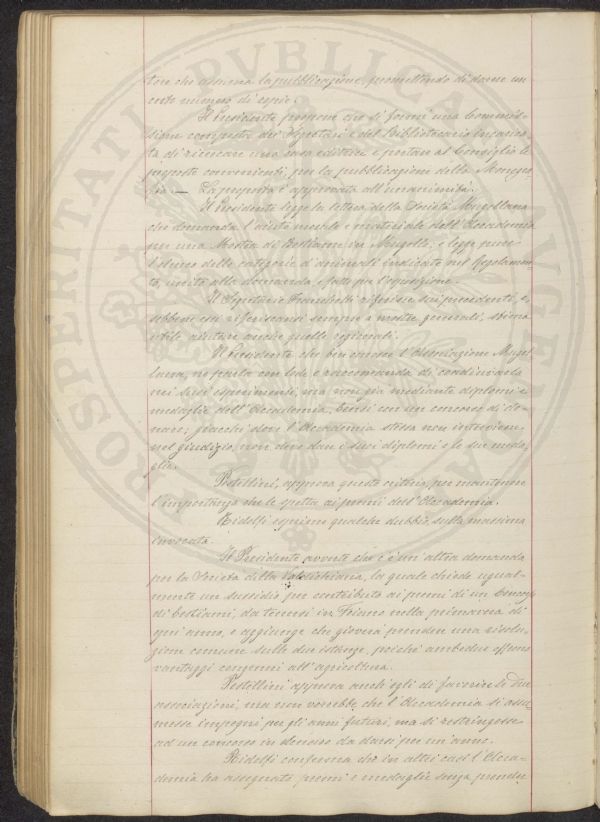 tore che assuma la pubblicazione, promettendo di darne un
certo numero di copie.
Il Presidente propone che si formi una Commis-
sione composta dei Segretari e del Bibliotecario incarica-
ta di ricercare una casa editrice e portare al Consiglio le
proposte convenienti per la pubblicazione della Monogra-
fia. — La proposta è approvata all'unanimità.
Il Presidente legge la lettera della Società Mugellana
che domanda l'aiuto morale e materiale dell'Accademia
per una Mostra di Bestiame in Mugello, e legge pure
l'elenco delle categorie d'animali indicate nel Regolamen-
to, unito alla domanda, e fatti per l'esposizione.
Il Segretario Franchetti riferisce sui precedenti, e,
sebbene essi riferiscansi sempre a mostre generali,
aiutare anche quelle regionali.
Il Presidente, che ben conosce l'Associazione Mugel-
lana, ne parla con lode e raccomanda di coadiuvarla
nei suoi esperimenti, ma non già mediante diplomi e
medaglie dell'Accademia, bensì con un concorso di de-
naro; giacchè dove l'Accademia stessa non interviene
nel giudizio, non deve dare i suoi diplomi e le sue meda-
glie.
Pestellini, approva questo criterio, per mantenere
l'importanza che le spetta ai premi dell'Accademia.
Ridolfi esprime qualche dubbio sulla massima
invocata.
Il Presidente avverte che c'è un'altra domanda
per la Società della Valdichiana, la quale chiede ugual-
mente un sussidio per contributo ai premi di un Concorso
di bestiami, da tenersi in Foiano nella primavera di
quest'anno, e aggiunge che gioverà prendere una risolu-
zione comune sulle due istanze, poichè ambedue offrono
vantaggi congeneri all'agricoltura.
Pestellini approva anch'egli di favorire le due
associazioni, ma non vorrebbe che l'Accademia si assu-
messe impegni per gli anni futuri, ma si restringesse
ad un concorso in denaro da darsi per un anno.
Ridolfi conferma che in altri casi l'Acca-
demia ha assegnato premi e medaglie senza prender
PROSPERITATI PVBLICAE AVGENDAE